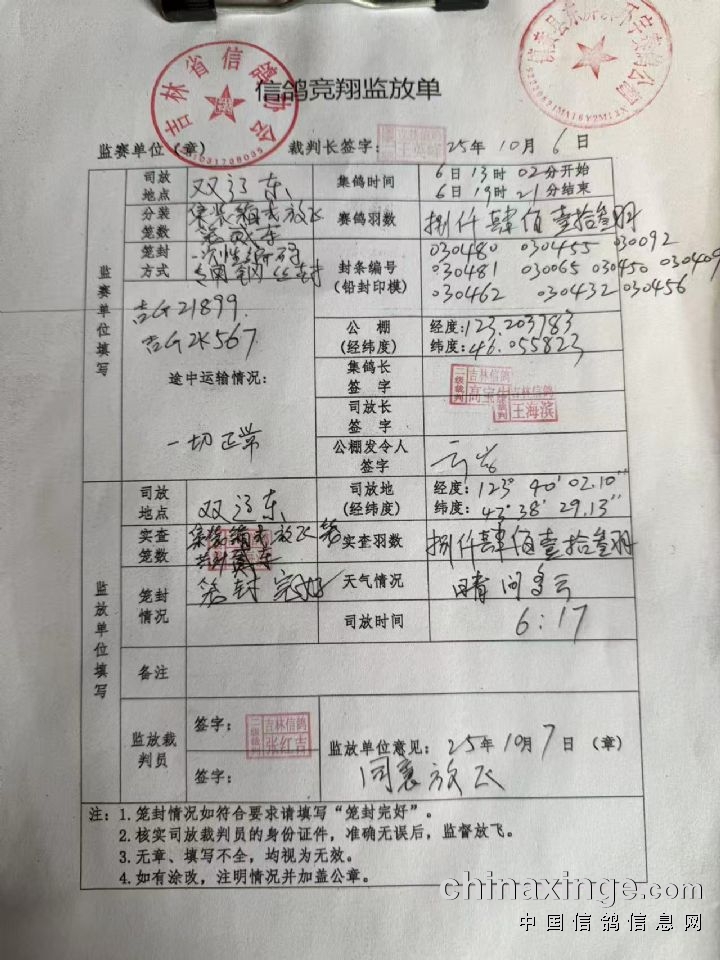 吉林省信鸽协会
信鸽竞翔监放单
监赛单位（章） 裁判长签字： 25年10月6日
监赛单位填写
司放地点 双辽东 集鸽时间 6日13时02分开始
6日19时21分结束
分装笼数 集装箱式放飞 赛鸽羽数 捌仟肆佰壹拾叁羽
笼封方式 一次性 专用钢丝封 封条编号（铅封印模） 030480 030455 030092
030481 030065 030450 030409
030462 030432 030456
吉G21899.
吉G2K567.
公棚（经纬度） 经度：123.203783
纬度：46.055823
途中运输情况：
一切正常
集鸽长签字 二级裁判 吉林信鸽
司放长签字 吉林信鸽 王海滨
公棚发令人签字
监放单位填写
司放地点 双辽东 司放地（经纬度） 经度：123°40'02.10"
纬度：43°38'29.13"
实查笼数 集装箱式放飞笼 实查羽数 捌仟肆佰壹拾叁羽
笼封情况 笼封完好 天气情况 晴间多云
司放时间 6:17
备注
监放裁判员 签字： 二级裁判 吉林信鸽 张红吉
签字：
监放单位意见： 25年10月7日（章）
同意放飞
注：1.笼封情况如符合要求请填写“笼封完好”。
2.核实司放裁判员的身份证件，准确无误后，监督放飞。
3.无章、填写不全，均视为无效。
4.如有涂改，注明情况并加盖公章。
chinaxinge.com
中国信鸽信息网